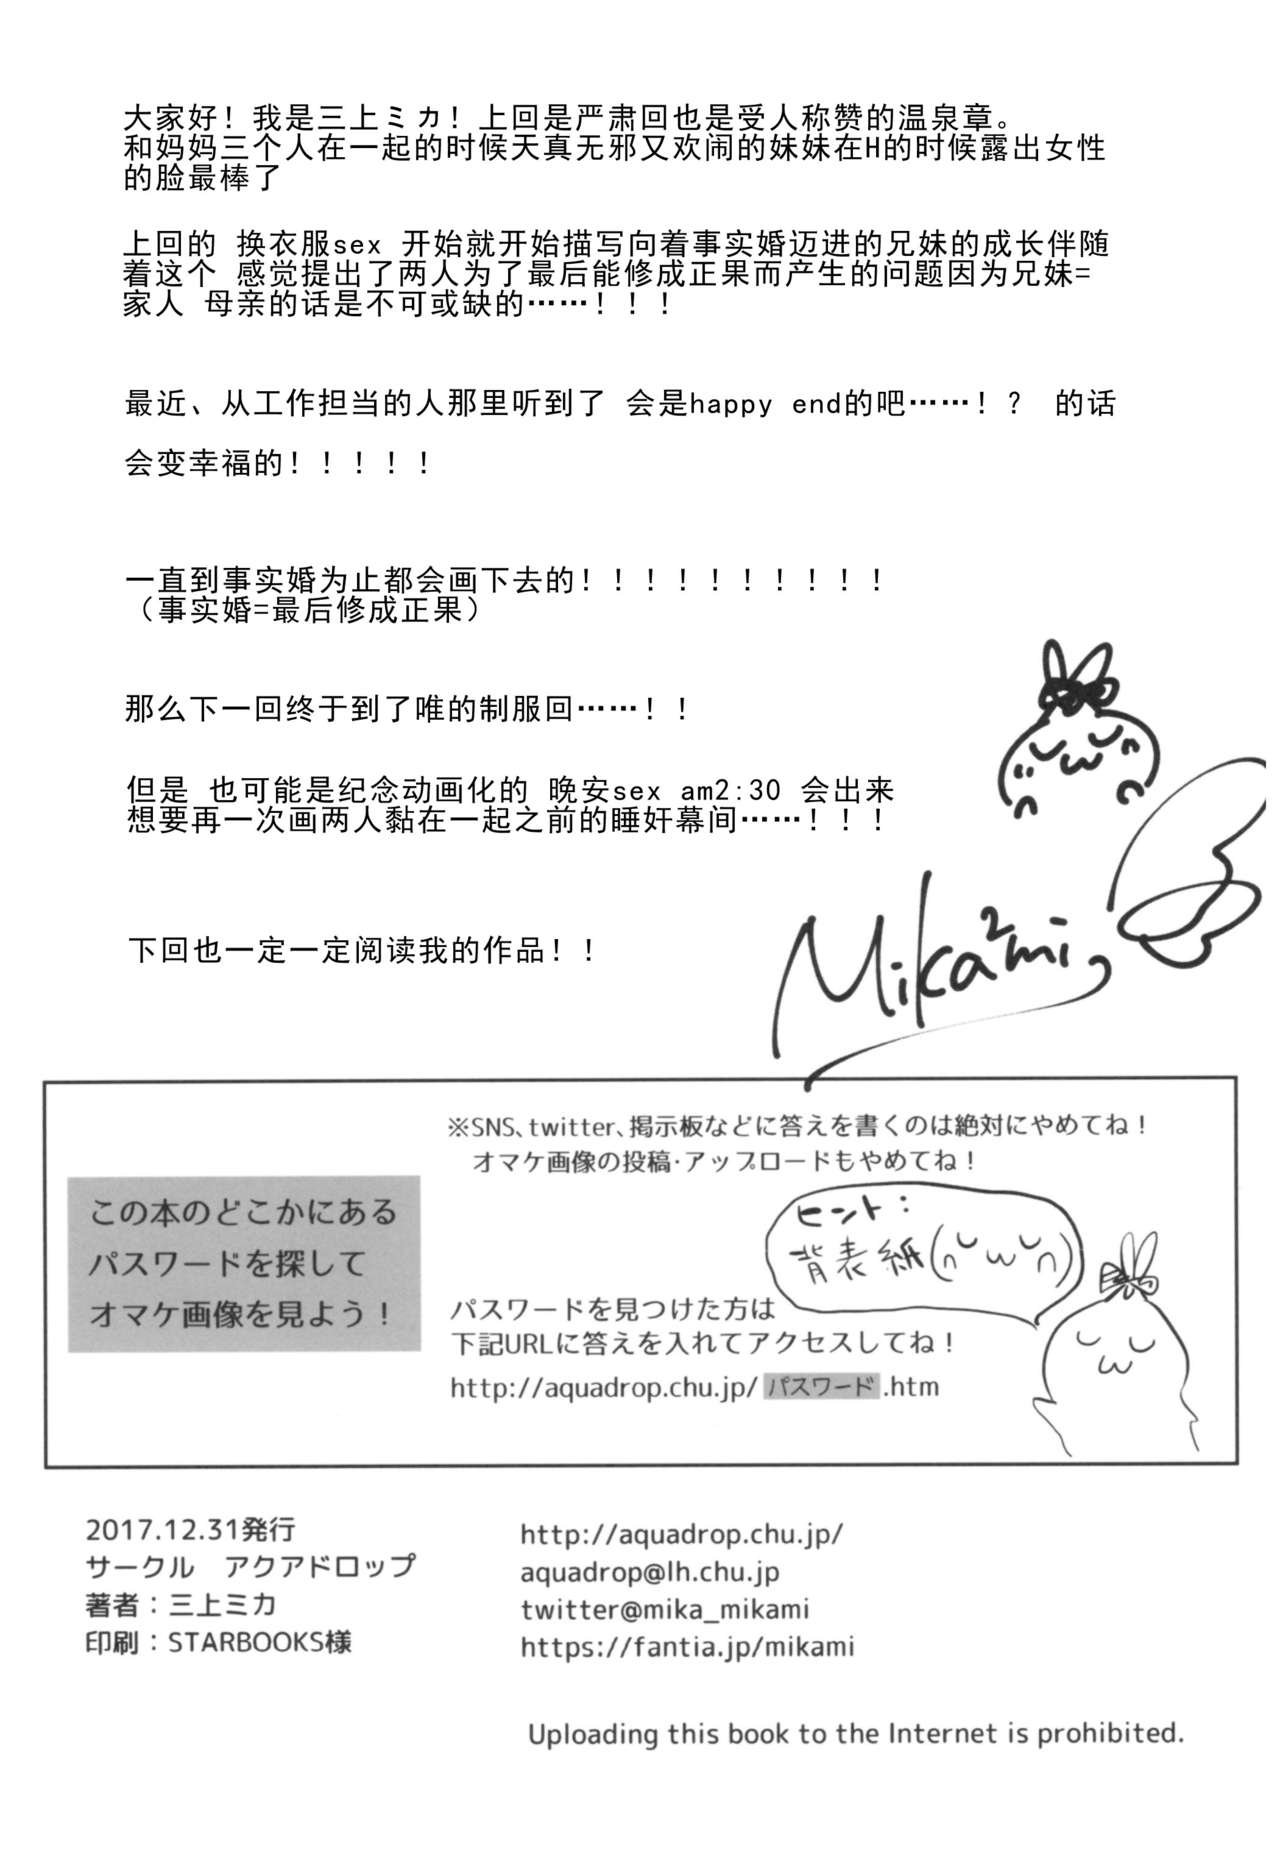 大家好！我是三上ミカ！上回是严肃回也是受人称赞的温泉章。
和妈妈三个人在一起的时候天真无邪又欢闹的妹妹在H的时候露出女性
的脸最棒了
上回的 换衣服sex 开始就开始描写向着事实婚迈进的兄妹的成长伴随
着这个 感觉提出了两人为了最后能修成正果而产生的问题因为兄妹=
家人 母亲的话是不可或缺的……！！！
最近、从工作担当的人那里听到了 会是happy end的吧……！？ 的话
会变幸福的！！！！！
一直到事实婚为止都会画下去的！！！！！！！！！！
（事实婚=最后修成正果）
那么下一回终于到了唯的制服回……！！
但是 也可能是纪念动画化的 晚安sex am2:30 会出来
想要再一次画两人黏在一起之前的睡奸幕间……！！！
下回也一定一定阅读我的作品！！
Mika²mi,
※SNS、twitter、掲示板などに答えを書くのは絶対にやめてね！
オマケ画像の投稿・アップロードもやめてね！
この本のどこかにある
パスワードを探して
オマケ画像を見よう！
ヒント：
背表紙(∩◡ω◡∩)
パスワードを見つけた方は
下記URLに答えを入れてアクセスしてね！
http://aquadrop.chu.jp/パスワード.htm
2017.12.31発行
サークル　アクアドロップ
著者：三上ミカ
印刷：STARBOOKS様
http://aquadrop.chu.jp/
aquadrop@lh.chu.jp
twitter@mika_mikami
https://fantia.jp/mikami
Uploading this book to the Internet is prohibited.